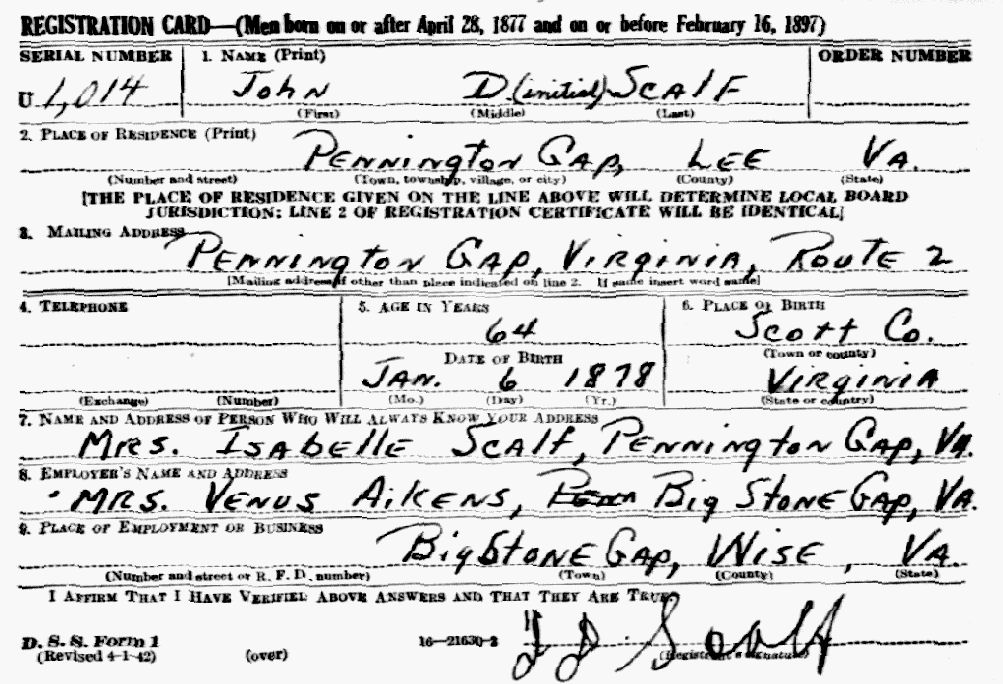 REGISTRATION CARD—(Men born on or after April 28, 1877 and on or before February 16, 1897)
SERIAL NUMBER 1. NAME (Print) ORDER NUMBER
U 1,014 John D (initial) Scalf
(First) (Middle) (Last)
2. PLACE OF RESIDENCE (Print)
Pennington Gap, Lee Va.
(Number and street) (Town, township, village, or city) (County) (State)
[THE PLACE OF RESIDENCE GIVEN ON THE LINE ABOVE WILL DETERMINE LOCAL BOARD
JURISDICTION; LINE 2 OF REGISTRATION CERTIFICATE WILL BE IDENTICAL]
3. MAILING ADDRESS
Pennington Gap, Virginia, Route 2
[Mailing address if other than place indicated on line 2. If same insert word same]
4. TELEPHONE 5. AGE IN YEARS 6. PLACE OF BIRTH
64 Scott Co.
DATE OF BIRTH (Town or county)
Jan. 6 1878 Virginia
(Exchange) (Number) (Mo.) (Day) (Yr.) (State or country)
7. NAME AND ADDRESS OF PERSON WHO WILL ALWAYS KNOW YOUR ADDRESS
Mrs. Isabelle Scalf, Pennington Gap, Va.
8. EMPLOYER'S NAME AND ADDRESS
Mrs. Venus Aikens, Penn Big Stone Gap, Va.
9. PLACE OF EMPLOYMENT OR BUSINESS
Big Stone Gap, Wise, Va.
(Number and street or R. F. D. number) (Town) (County) (State)
I AFFIRM THAT I HAVE VERIFIED ABOVE ANSWERS AND THAT THEY ARE TRUE.
D. S. S. Form 1 16—21630-2 J D Scalf
(Revised 4-1-42) (over) (Registrant's signature)